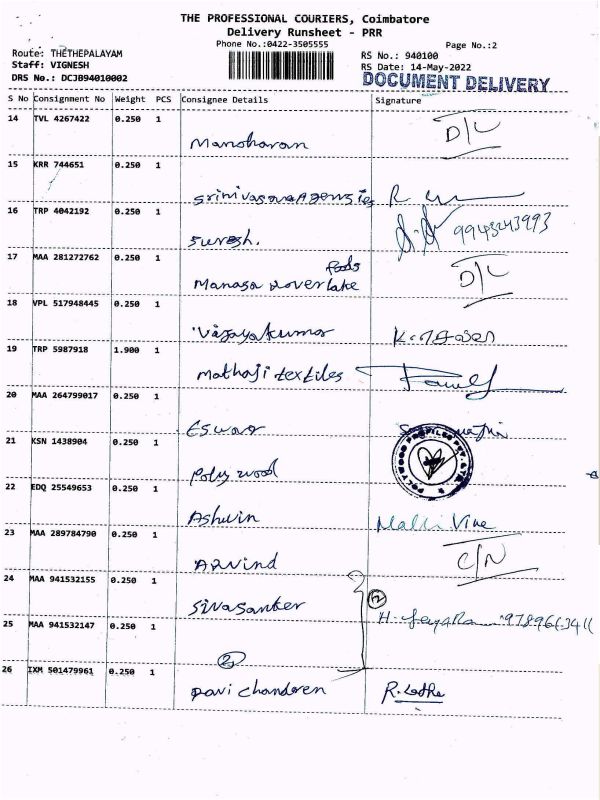 THE PROFESSIONAL COURIERS, Coimbatore
Delivery Runsheet - PRR
Phone No.:0422-3505555
Page No.:2
Route: THETHEPALAYAM
RS No.: 940100
Staff: VIGNESH
RS Date: 14-May-2022
DRS No.: DCJB94010002
DOCUMENT DELIVERY
S No Consignment No Weight PCS Consignee Details Signature
14 TVL 4267422 0.250 1 Manoharan D/L
15 KRR 744651 0.250 1 Srinivasava Agensies
16 TRP 4042192 0.250 1 Suresh. 9943243993
17 MAA 281272762 0.250 1 Manasa Roverlake foods D/L
18 VPL 517948445 0.250 1 Vijayakumar
19 TRP 5987918 1.900 1 Mathaji textiles
20 MAA 264799017 0.250 1 Eswar
21 KSN 1438904 0.250 1 Poly wood POLYWOOD PROFILES PVT. LTD.
22 EDQ 25549653 0.250 1 Ashwin Malli Vine
23 MAA 289784790 0.250 1 Arvind C/N
24 MAA 941532155 0.250 1 Sivasanker
25 MAA 941532147 0.250 1 2
26 IXM 501479961 0.250 1 Ravi chandren R. Latha